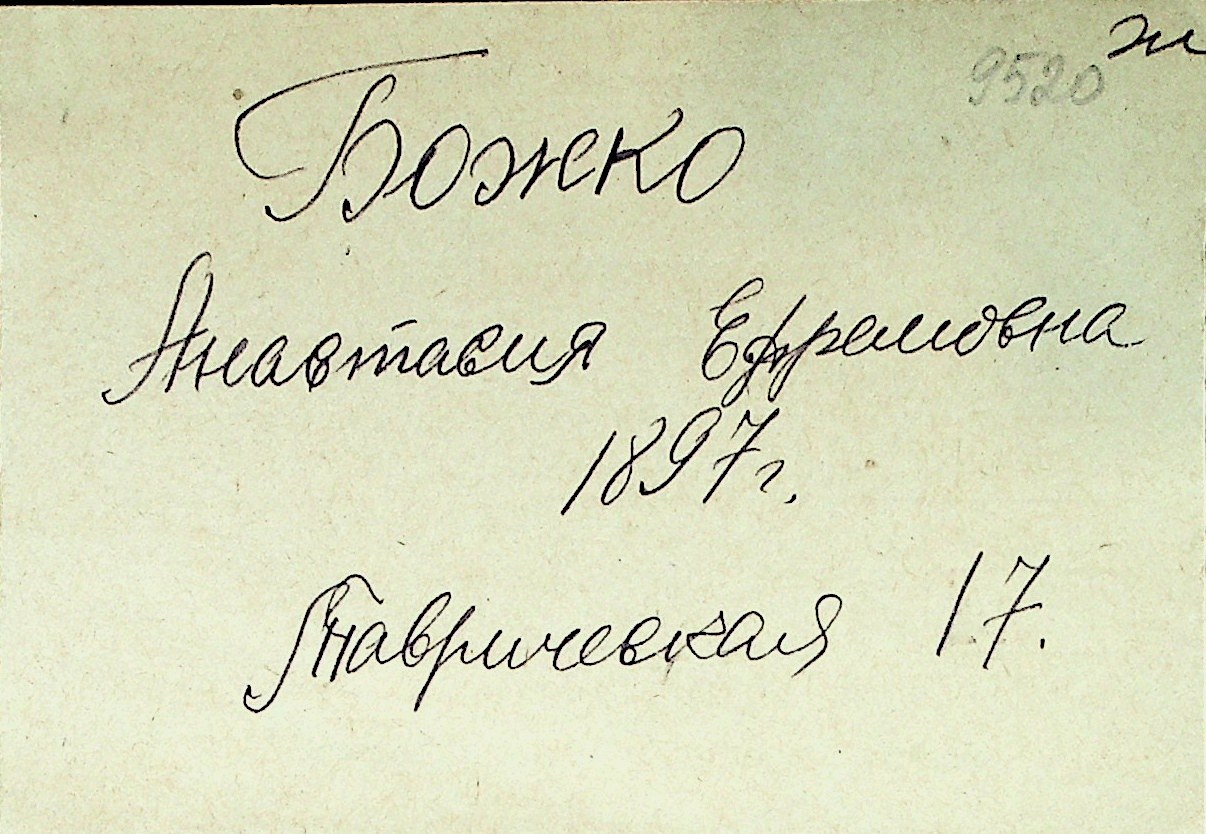 9520 ж
Божко
Анастасия Ефремовна
1897г.
Таврическая 17.